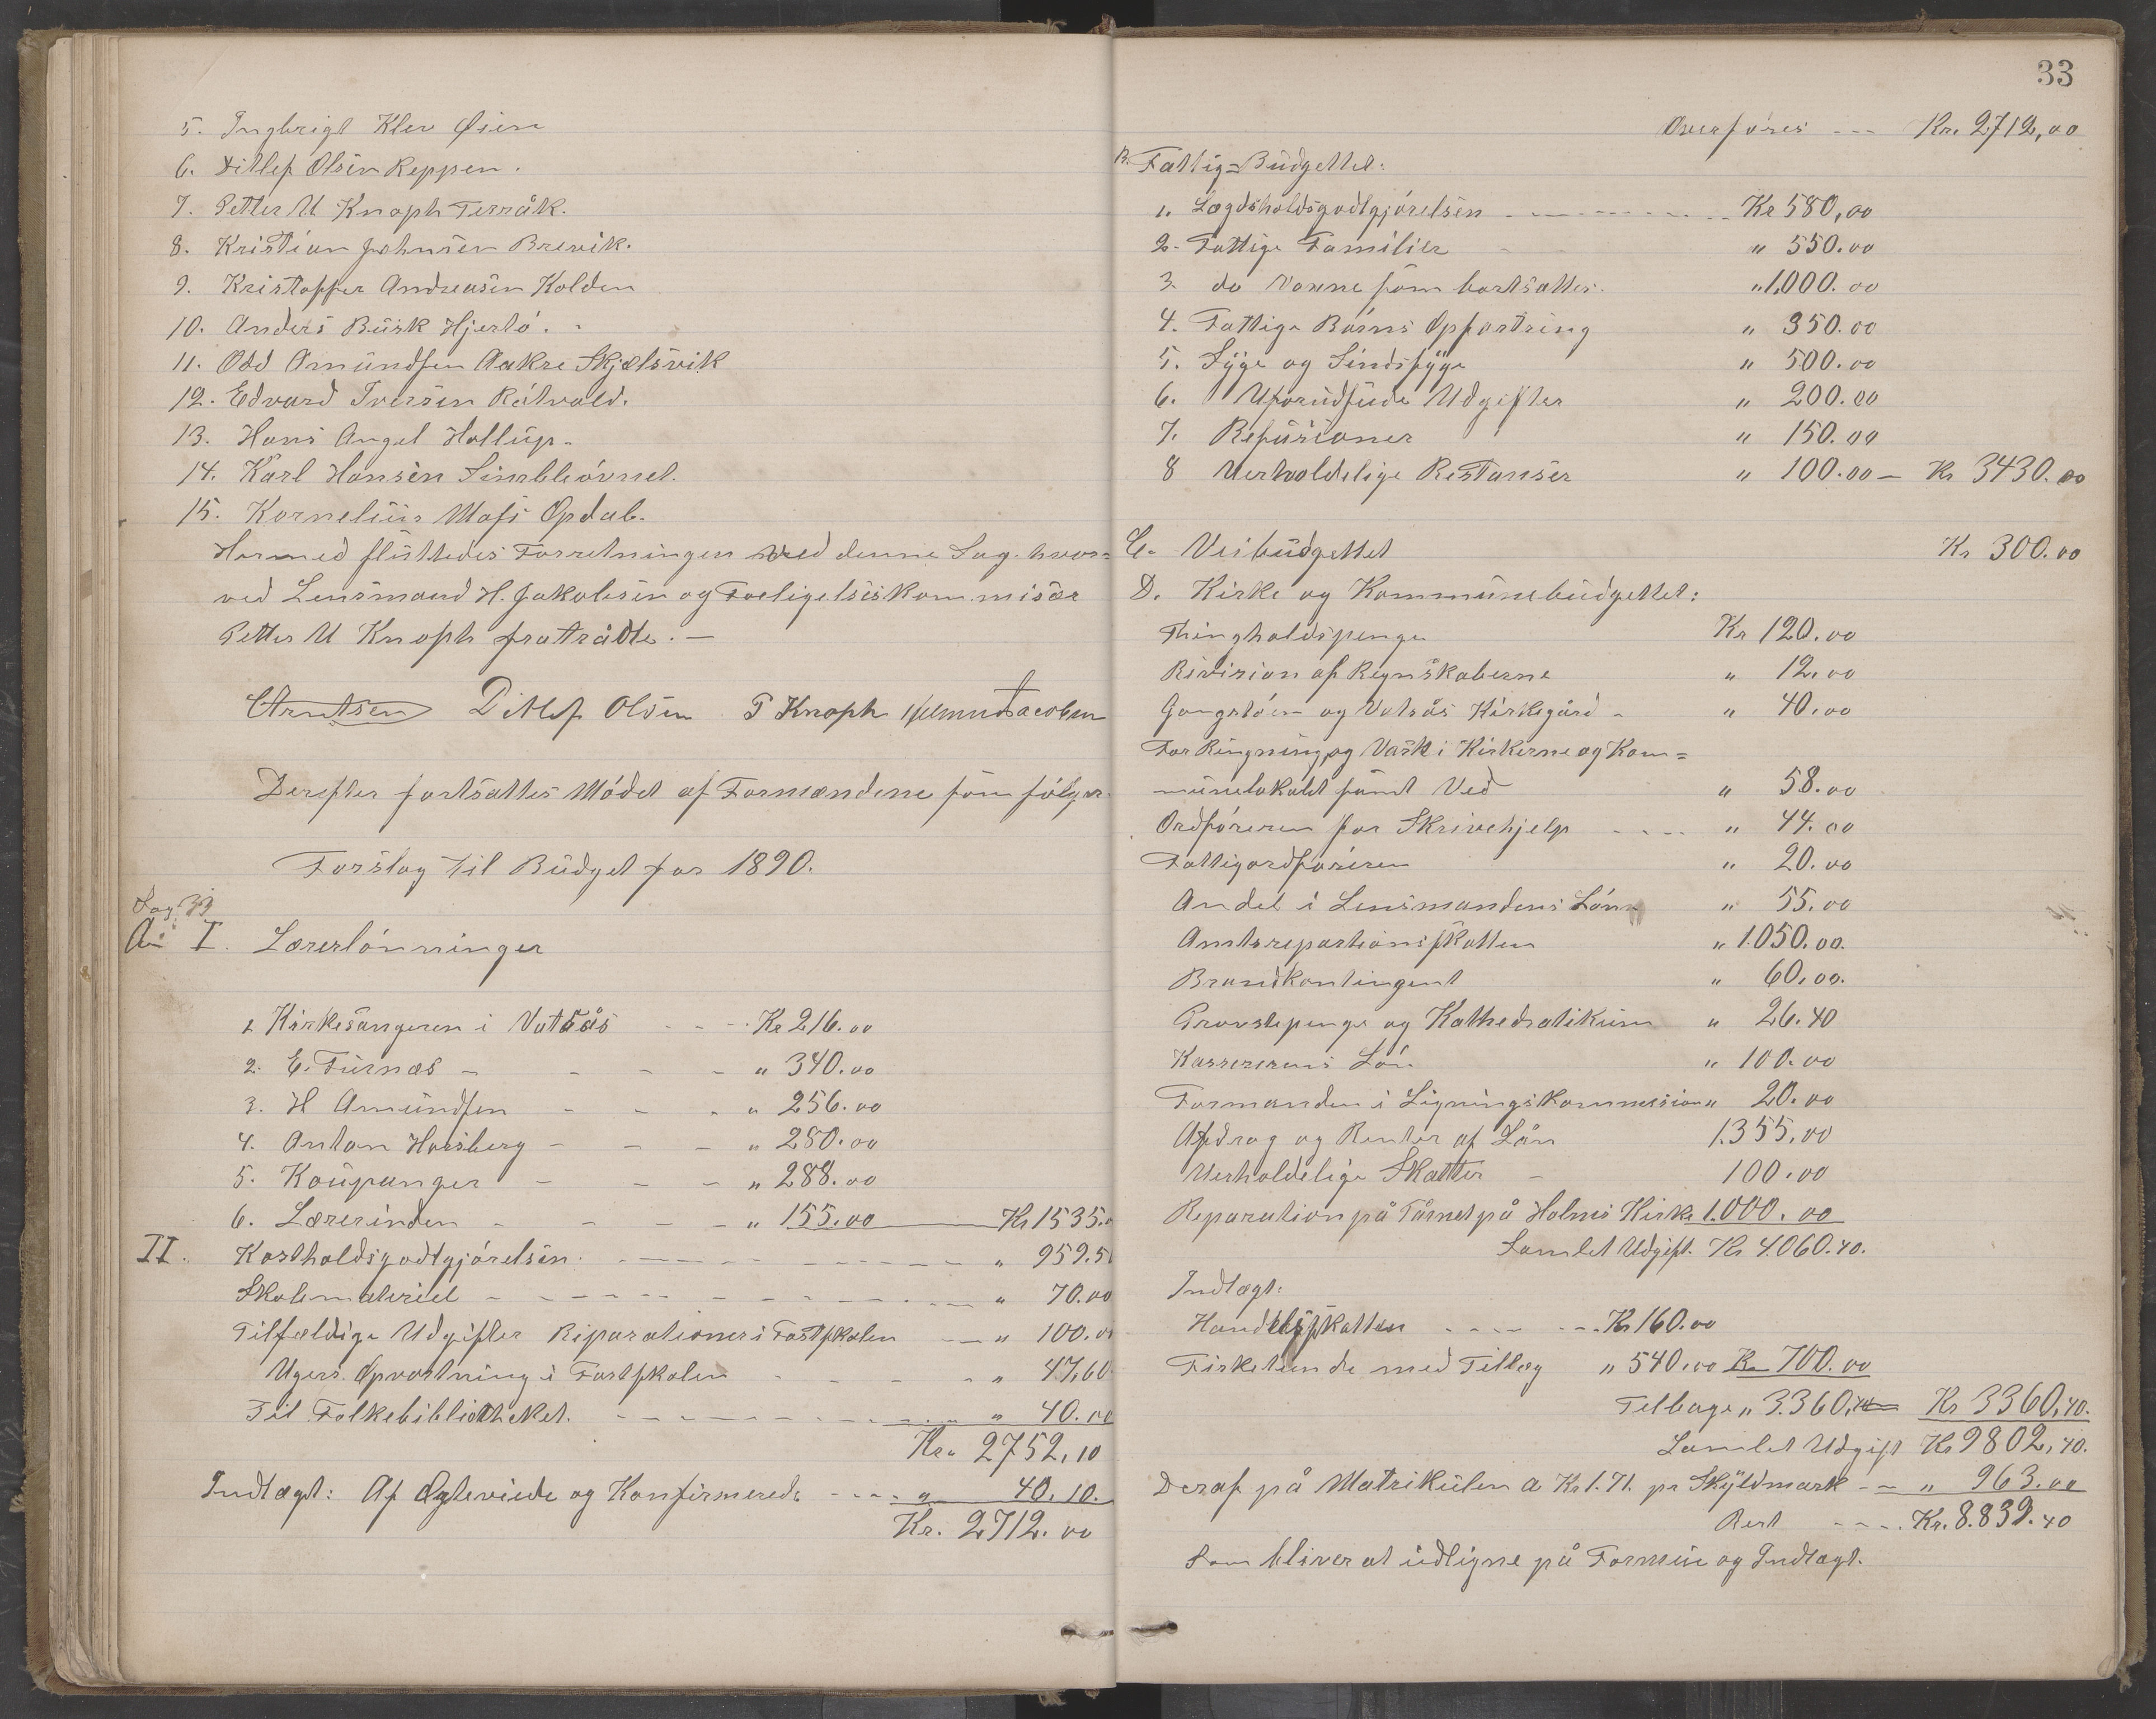 5. Ingbrigt Klev Øien
6. Ditlef Olsen Reppen.
7. Petter M Knoph Terråk.
8. Kristian Johnsen Brevik.
9. Kristoffer Andreasen Kolden
10. Anders Busk Hjertö.
11. Odd Amundsen Aakre Skjelsvik
12. Edvard Iversen Råtvold.
13. Hans Angel Hollup.
14. Karl Hansen
15. Kornelius Mosj Opdal.
Hermed sluttedes Forretningen ved denne Sag. hvor=
ved Lensmand H. Jakobsen og Fæligelsiskommisær
Petter M Knoph fratrådte. —
CArntsen Ditlef Olsen P Knoph Helmut Jacobsen
Derefter fortsattes Mödet af Formændene som fölger
Forslag til Budget for 1890.
Sag 33
A. I. Lærerlönninger
1 Kirkesangeren i Vatsås - - - Kr 216.00
2. E. Furnæs - - - - " 340.00
3. H Amundsen - - - " 256.00
4. Anton Horsberg - - - " 280.00
5. Kaupanger - - - " 288.00
6. Lærerinden - - - - " 155.00 Kr 1535.0
II. Kostholdsgodtgjörelsen. - - - " 959.50
Skolemateriel - - - - " 70.00
Tilfældige Udgifter Reparationer i Fastskolen - - " 100.00
Ugers. Opvartning i Fastskolen - - - " 47,60
Til Folkebibliotheket. - - - " 40.00
Kr. 2752,10
Indtægt: Af Ægteviede og Konfirmerede - - - " 40.10.
Kr. 2712.00
33
Overföres - - - Kr. 2712,00
B. Fattig=Budgettet:
1. Lægdsholdsgodtgjörelsen - - - Kr 580,00
2. Fattige Familier - " 550.00
3 do Voxne som bortsattes. " 1.000.00
4. Fattige Börns Opfostring " 350.00
5. Syge og Sindssyge " 500.00
6. Uforudseede Udgifter " 200.00
7. Refusioner " 150.00
8 Uerholdelige Restanser " 100.00 — Kr 3430.00
C. Veibudgettet Kr 300.00
D. Kirke og Kommunebudgettet:
Thingholdspenge Kr 120.00
Revision af Regnskaberne " 12.00
Gangstöen og Vatsås Kirkegård - " 40.00
For Ringning og Vask i Kirkerne og Kom=
munelokalet samt Ved " 58.00
Ordföreren for Skrivehjelp - - - - " 44.00
Fattigordföreren " 20.00
Andel i Lensmandens Lönn " 55.00
Amtsrepartionsskatten " 1.050.00.
Brandkontingent " 60.00.
Provstepenge og Kathedratikum " 26.40
Kassererens Lön " 100.00
Formanden i Ligningskommission " 20.00
Afdrag og Renter af Lån 1.355,00
Uerholdelige Skatter - 100.00
Reparation på Tårnet på Holms Kirke 1.000.00
Samlet Udgift. Kr 4.060.40.
Indtægt:
Handelsskatten - - - - - Kr 160.00
Fisketiende med Tillæg " 540.00 Kr 700.00
Tilbage " 3.360,40 Kr 3360,40.
Samlet Udgift Kr 9802,40.
Deraf på Matrikulen a Kr 1.71. pr Skyldmark - - " 963.00
Rest - - - . Kr. 8.839.40
som bliver at udligne på Formue og Indtægt.